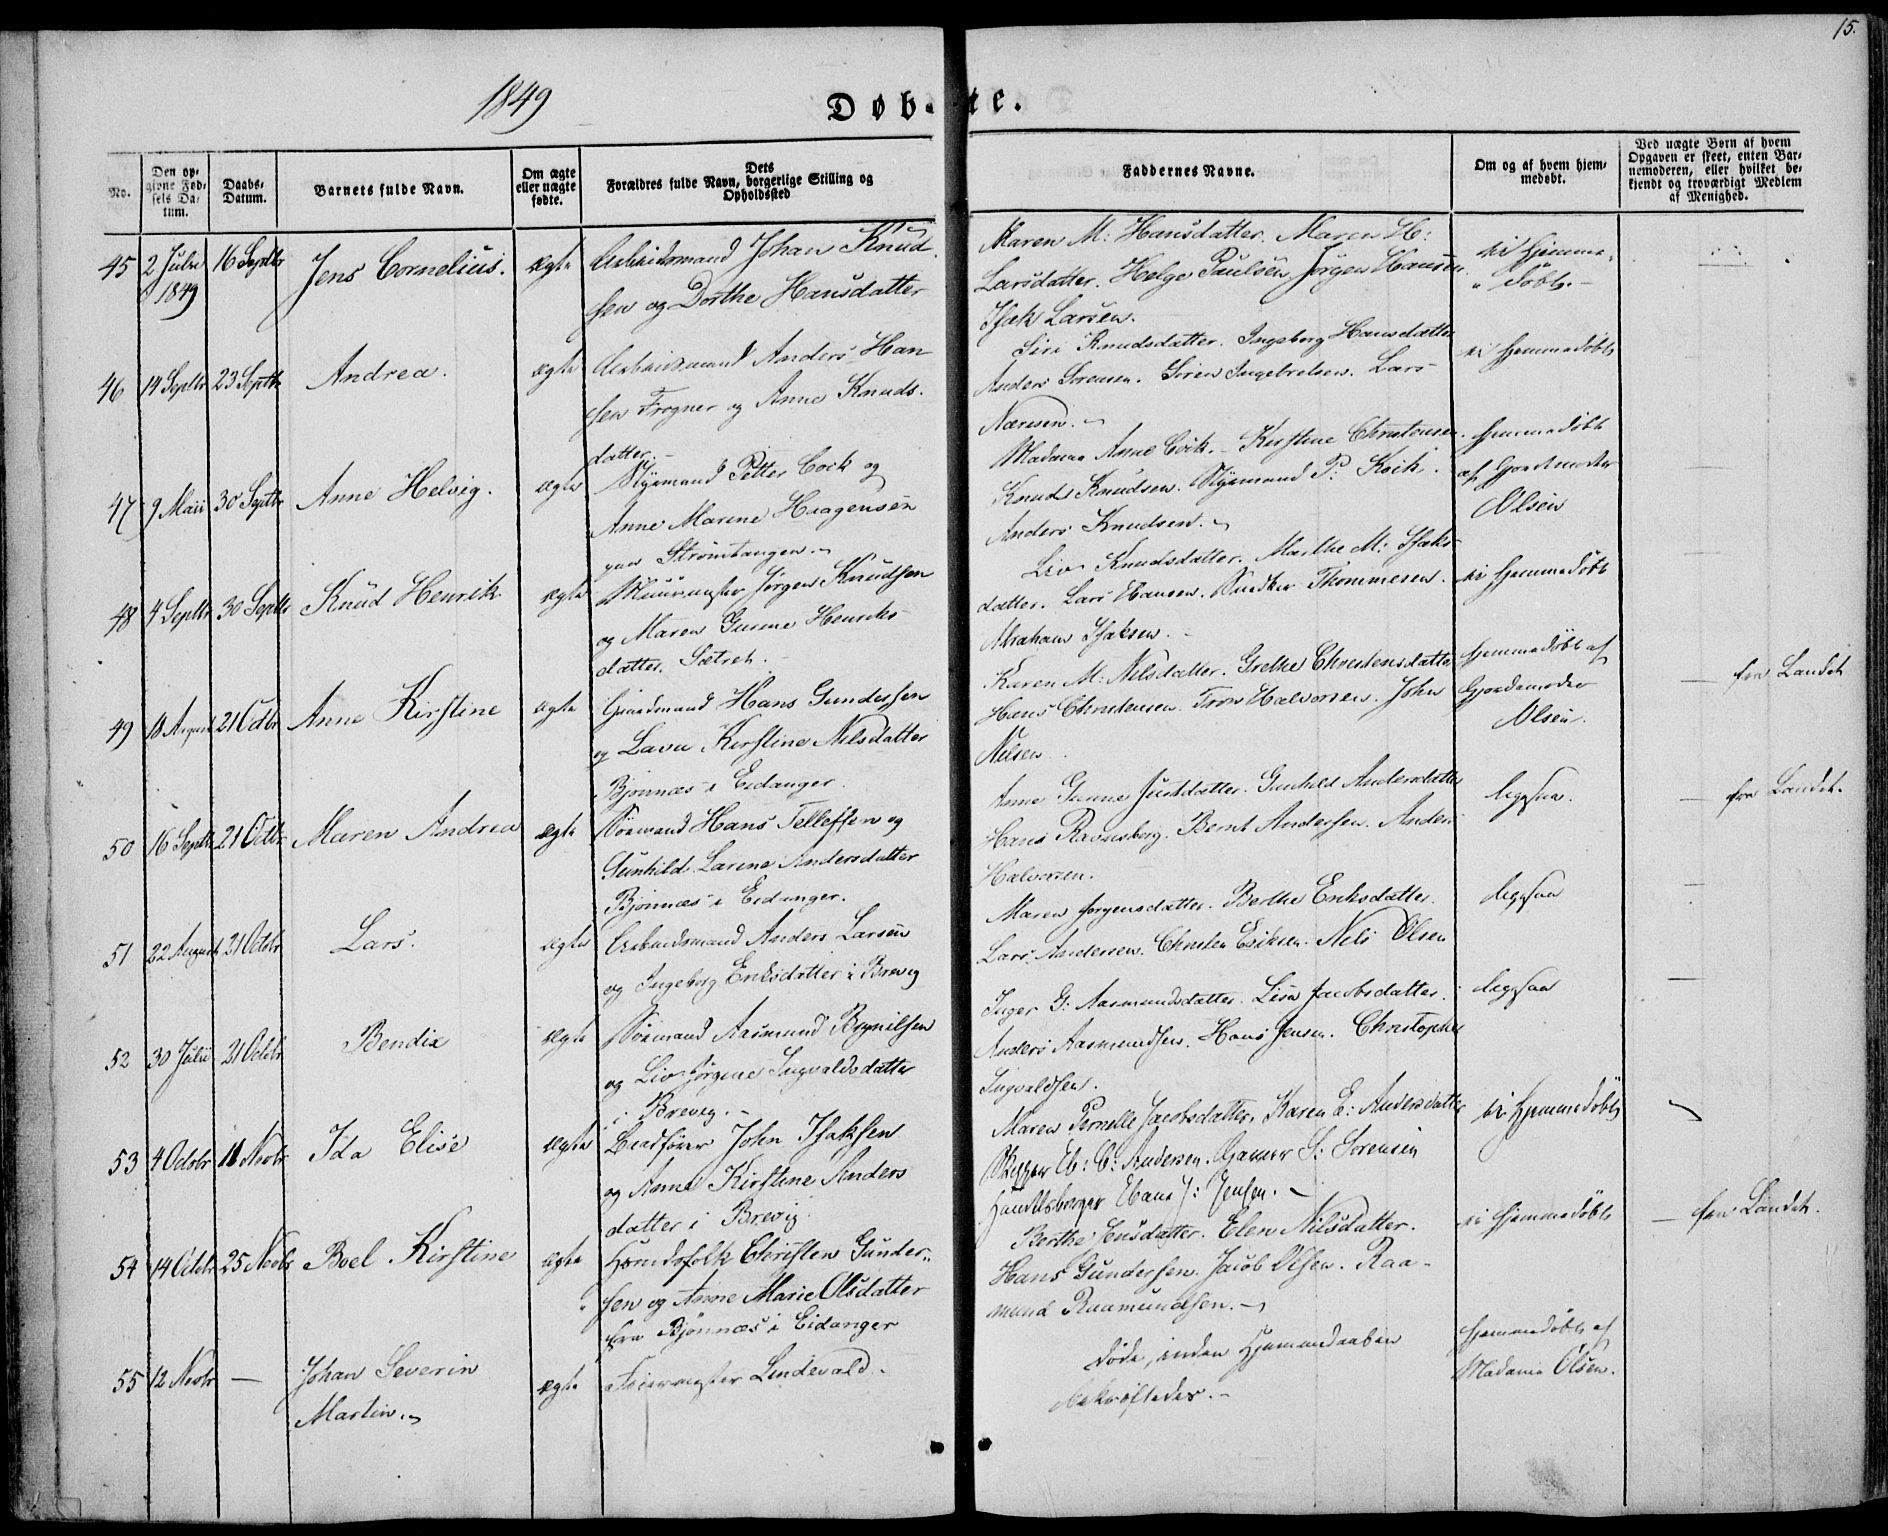 15.
1849
Døb- ne.
No.
Den op-
givne Fød-
sels Da-
tum.
Daabs-
Datum.
Barnets fulde Navn.
Om ægte
eller uægte
fødte.
Dets
Forældres fulde Navn, borgerlige Stilling og
Opholdssted
Faddernes Navne.
Om og af hvem hjem-
medøbt.
Ved uægte Børn af hvem
Opgaven er skeet, enten Bar-
nemoderen, eller hvilket be-
kjendt og troværdigt Medlem
af Menighed.
45 2 Julii 1849 16 Septbr Jens Cornelius. ægte
Arbeidsmand Johan Knud-
sen og Dorthe Hansdatter
Maren M: Hansdatter. Maren H:
Larsdatter. Helge Paulsen. Jørgen Hansen
Isak Larsen.
ei hjemme-
døbt.
46 14 Septbr 23 Septbr Andrea. ægte
Arbeidsmand Anders Han
sen Frogner og Anne Knuds-
datter.
Siri Knudsdatter. Ingeborg Hansdatter
Anders Sørensen. Søren Ingebretsen. Lars
ei hjemmedøbt
47 9 Maii 30 Septbr Anne Helvig. ægte
Styrmand Petter Coik og
Anne Marine Haagensen
paa Strømtangen.
Madame Anne Coik. Kirstine Christensen.
Knud Knudsen. Styrmand P: Koik.
Anders Knudsen.
hjemmedøbt
af Gjordmoder
Olsen
48 4 Septbr 30 Septbr Knud Henrik ægte
Muurmester Jørgen Knudsen
og Maren Gurine Henriks-
datter. Sætret.
Liv Knudsdatter. Marthe M: Isaks-
datter. Lars Hansen. Thommesen.
Abraham Isaksen.
ei hjemmedøbt
49 18 August 21 Octbr Anne Kirstine ægte
Gaardmand Hans Gundersen
og Lava Kirstine Nilsdatter
Bjønnæs i Eidanger.
Karen M: Nilsdatter. Grethe Christensdatter
Hans Christensen. Tron Halvorsen. John
Nilsen
hjemmedøbt af
Gjordemoder
Olsen.
fra Landet
50 16 Septbr 21 Octbr Maren Andrea ægte
Sømand Hans Tellefsen og
Gunhild Larine Andersdatter
Bjønnæs i Eidanger.
Anne Gurine Justdatter. Gunhild Andersdatter
Hans Ravnsberg. Bernt Andersen. Anders
Halvorsen.
ligesaa.
fra Landet.
51 22 August 21 Octbr Lars. ægte
Arbeidsmand Anders Larsen
og Ingeborg Eriksdatter i Brevig
Maren Jørgensdatter. Berthe Eriksdatter.
Lars Andersen. Christen Eriksen. Nils Olsen
ligesaa
52 30 Julii 21 Octbr Bendix ægte
Sømand Aasmund Brynilsen
og Liv Jørgine Ingvaldsdatter
i Brevig.
Inger G: Aasmundsdatter. Lisa Jacobsdatter.
Anders Aasmundsen. Hans Jensen. Christopher
Ingvaldsen.
ligesaa
53 4 Octobr 11 Novbr Ida Elise ægte
John Isaksen
og Anne Kirstine Anders
datter i Brevig
Maren Pernelle Jacobsdatter. Karen E: Andersdatter
Skipper Eb: C: Andersen. Garver S: Sørensen
Handelsborger J: Jensen.
ei hjemmedøbt
54 14 Octbr 25 Novbr Boel Kirstine ægte
Huusfolk Christen Gunder-
sen og Anne Marie Olsdatter
fra Bjønnæs i Eidanger
Berthe Ensdatter. Elen Nilsdatter.
Hans Gundersen. Jacob Olsen. Raa-
mund Raamundsen.
ei hjemmedøbt
fra Landet.
55 12 Novbr — Johan Severin
Martin. ægte
Feiermester Lindevald.
døde, inden hjemmedaaben
bekræftedes.
hjemmedøbt af
Madame Olsen.